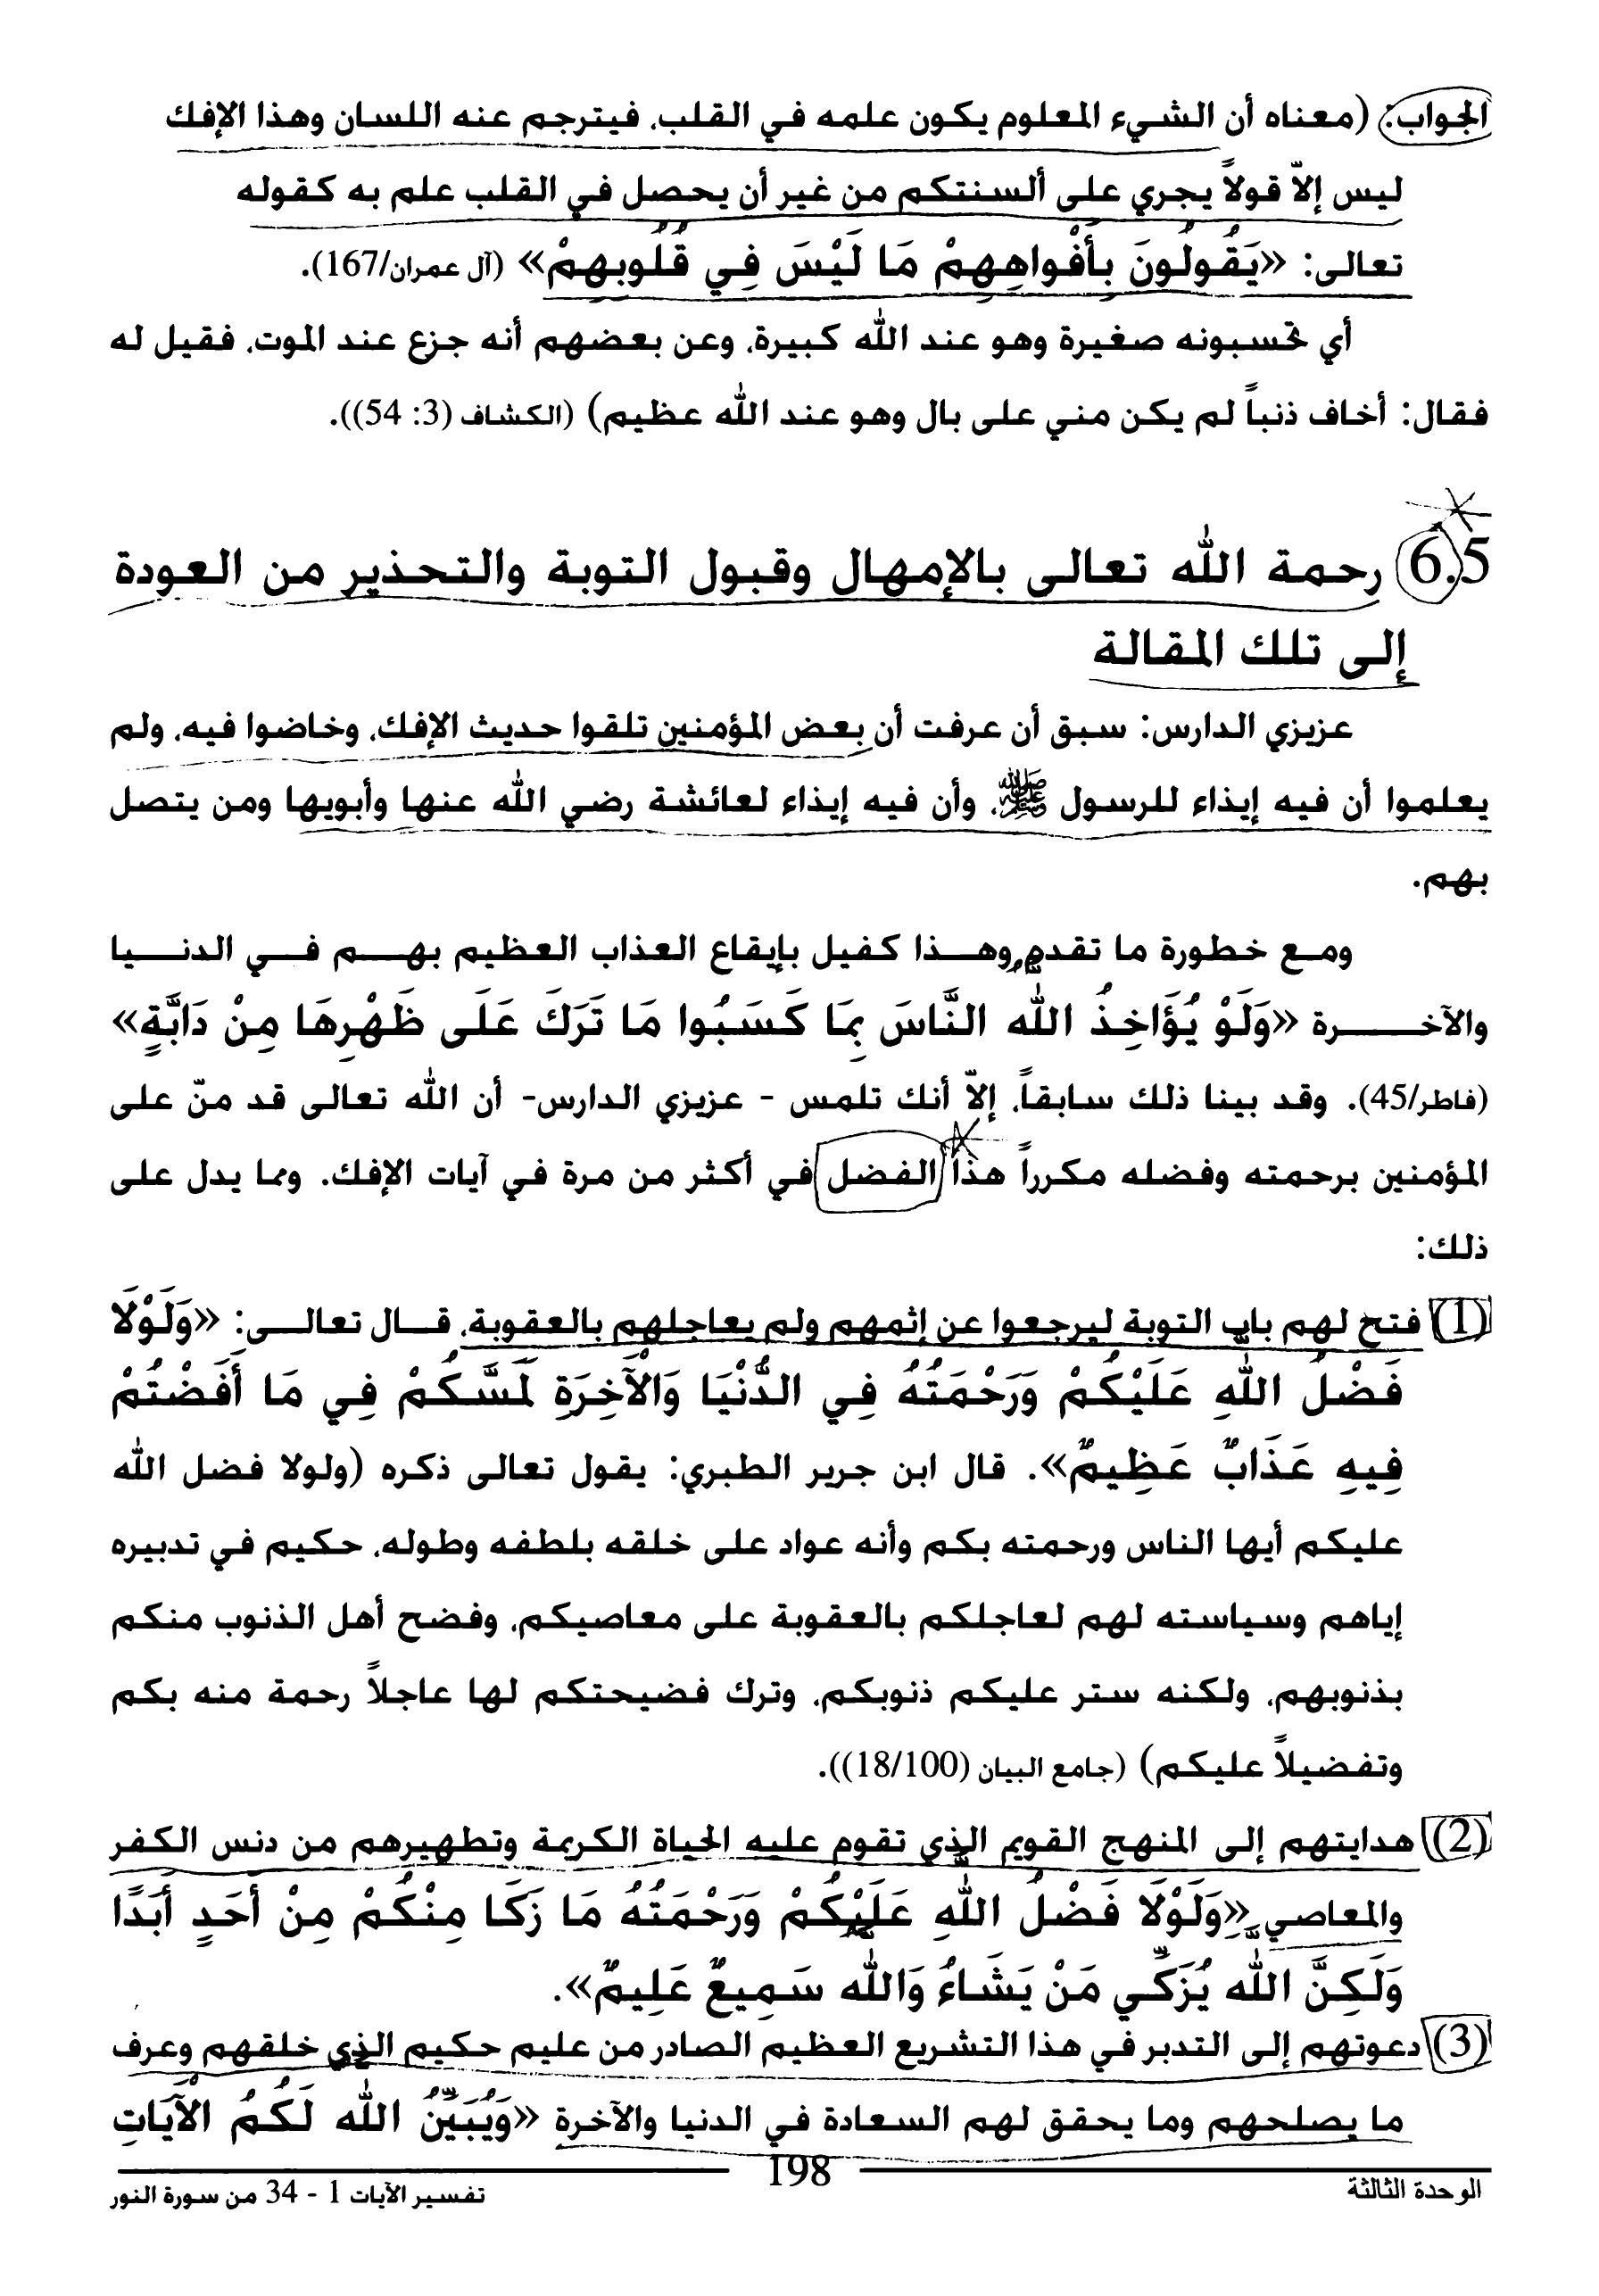 الجواب: (معناه أن الشيء المعلوم يكون علمه في القلب، فيترجم عنه اللسان وهذا الإفك
ليس إلاّ قولاً يجري على ألسنتكم من غير أن يحصل في القلب علم به كقوله
تعالى: «يَقُولُونَ بِأَفْواهِهِمْ مَا لَيْسَ فِي قُلُوبِهِمْ» (آل عمران/167).
أي تحسبونه صغيرة وهو عند الله كبيرة، وعن بعضهم أنه جزع عند الموت، فقيل له
فقال: أخاف ذنباً لم يكن مني على بال وهو عند الله عظيم) (الكشاف (3: 54)).
6.5 رحمة الله تعالى بالإمهال وقبول التوبة والتحذير من العودة
إلى تلك المقالة
عزيزي الدارس: سبق أن عرفت أن بعض المؤمنين تلقوا حديث الإفك، وخاضوا فيه، ولم
يعلموا أن فيه إيذاء للرسول ﷺ، وأن فيه إيذاء لعائشة رضي الله عنها وأبويها ومن يتصل
بهم.
ومع خطورة ما تقدم وهذا كفيل بإيقاع العذاب العظيم بهم في الدنيا
والآخرة «وَلَوْ يُؤَاخِذُ الله النَّاسَ بِمَا كَسَبُوا مَا تَرَكَ عَلَى ظَهْرِهَا مِنْ دَابَّةٍ»
(فاطر/45). وقد بينا ذلك سابقاً، إلاّ أنك تلمس - عزيزي الدارس- أن الله تعالى قد منّ على
المؤمنين برحمته وفضله مكرراً هذا الفضل في أكثر من مرة في آيات الإفك. ومما يدل على
ذلك:
(1) فتح لهم باب التوبة ليرجعوا عن إثمهم ولم يعاجلهم بالعقوبة، قال تعالى: «وَلَوْلَا
فَضْلُ اللهِ عَلَيْكُمْ وَرَحْمَتُهُ فِي الدُّنْيَا وَالْآخِرَةِ لَمَسَّكُمْ فِي مَا أَفَضْتُمْ
فِيهِ عَذَابٌ عَظِيمٌ». قال ابن جرير الطبري: يقول تعالى ذكره (ولولا فضل الله
عليكم أيها الناس ورحمته بكم وأنه عواد على خلقه بلطفه وطوله، حكيم في تدبيره
إياهم وسياسته لهم لعاجلكم بالعقوبة على معاصيكم، وفضح أهل الذنوب منكم
بذنوبهم، ولكنه ستر عليكم ذنوبكم، وترك فضيحتكم لها عاجلاً رحمة منه بكم
وتفضيلاً عليكم) (جامع البيان (18/100)).
(2) هدايتهم إلى المنهج القويم الذي تقوم عليه الحياة الكريمة وتطهيرهم من دنس الكفر
والمعاصي «وَلَوْلَا فَضْلُ اللهِ عَلَيْكُمْ وَرَحْمَتُهُ مَا زَكَا مِنْكُمْ مِنْ أَحَدٍ أَبَدًا
وَلَكِنَّ الله يُزَكِّي مَنْ يَشَاءُ وَالله سَمِيعٌ عَلِيمٌ».
(3) دعوتهم إلى التدبر في هذا التشريع العظيم الصادر من عليم حكيم الذي خلقهم وعرف
ما يصلحهم وما يحقق لهم السعادة في الدنيا والآخرة «وَيُبَيِّنُ الله لَكُمُ الْآيَاتِ
الوحدة الثالثة
198
تفسير الآيات 1 - 34 من سورة النور